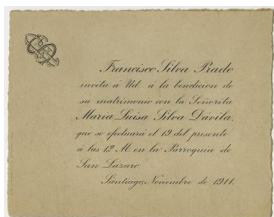 Francisco Silva Prado
invita a Ud. a la bendicion de
su matrimonio con la Señorita
Maria Luisa Silva Davila,
que se efectuará el 19 del presente
a las 12 M. en la Parroquia de
San Lázaro.
Santiago, Noviembre de 1911.